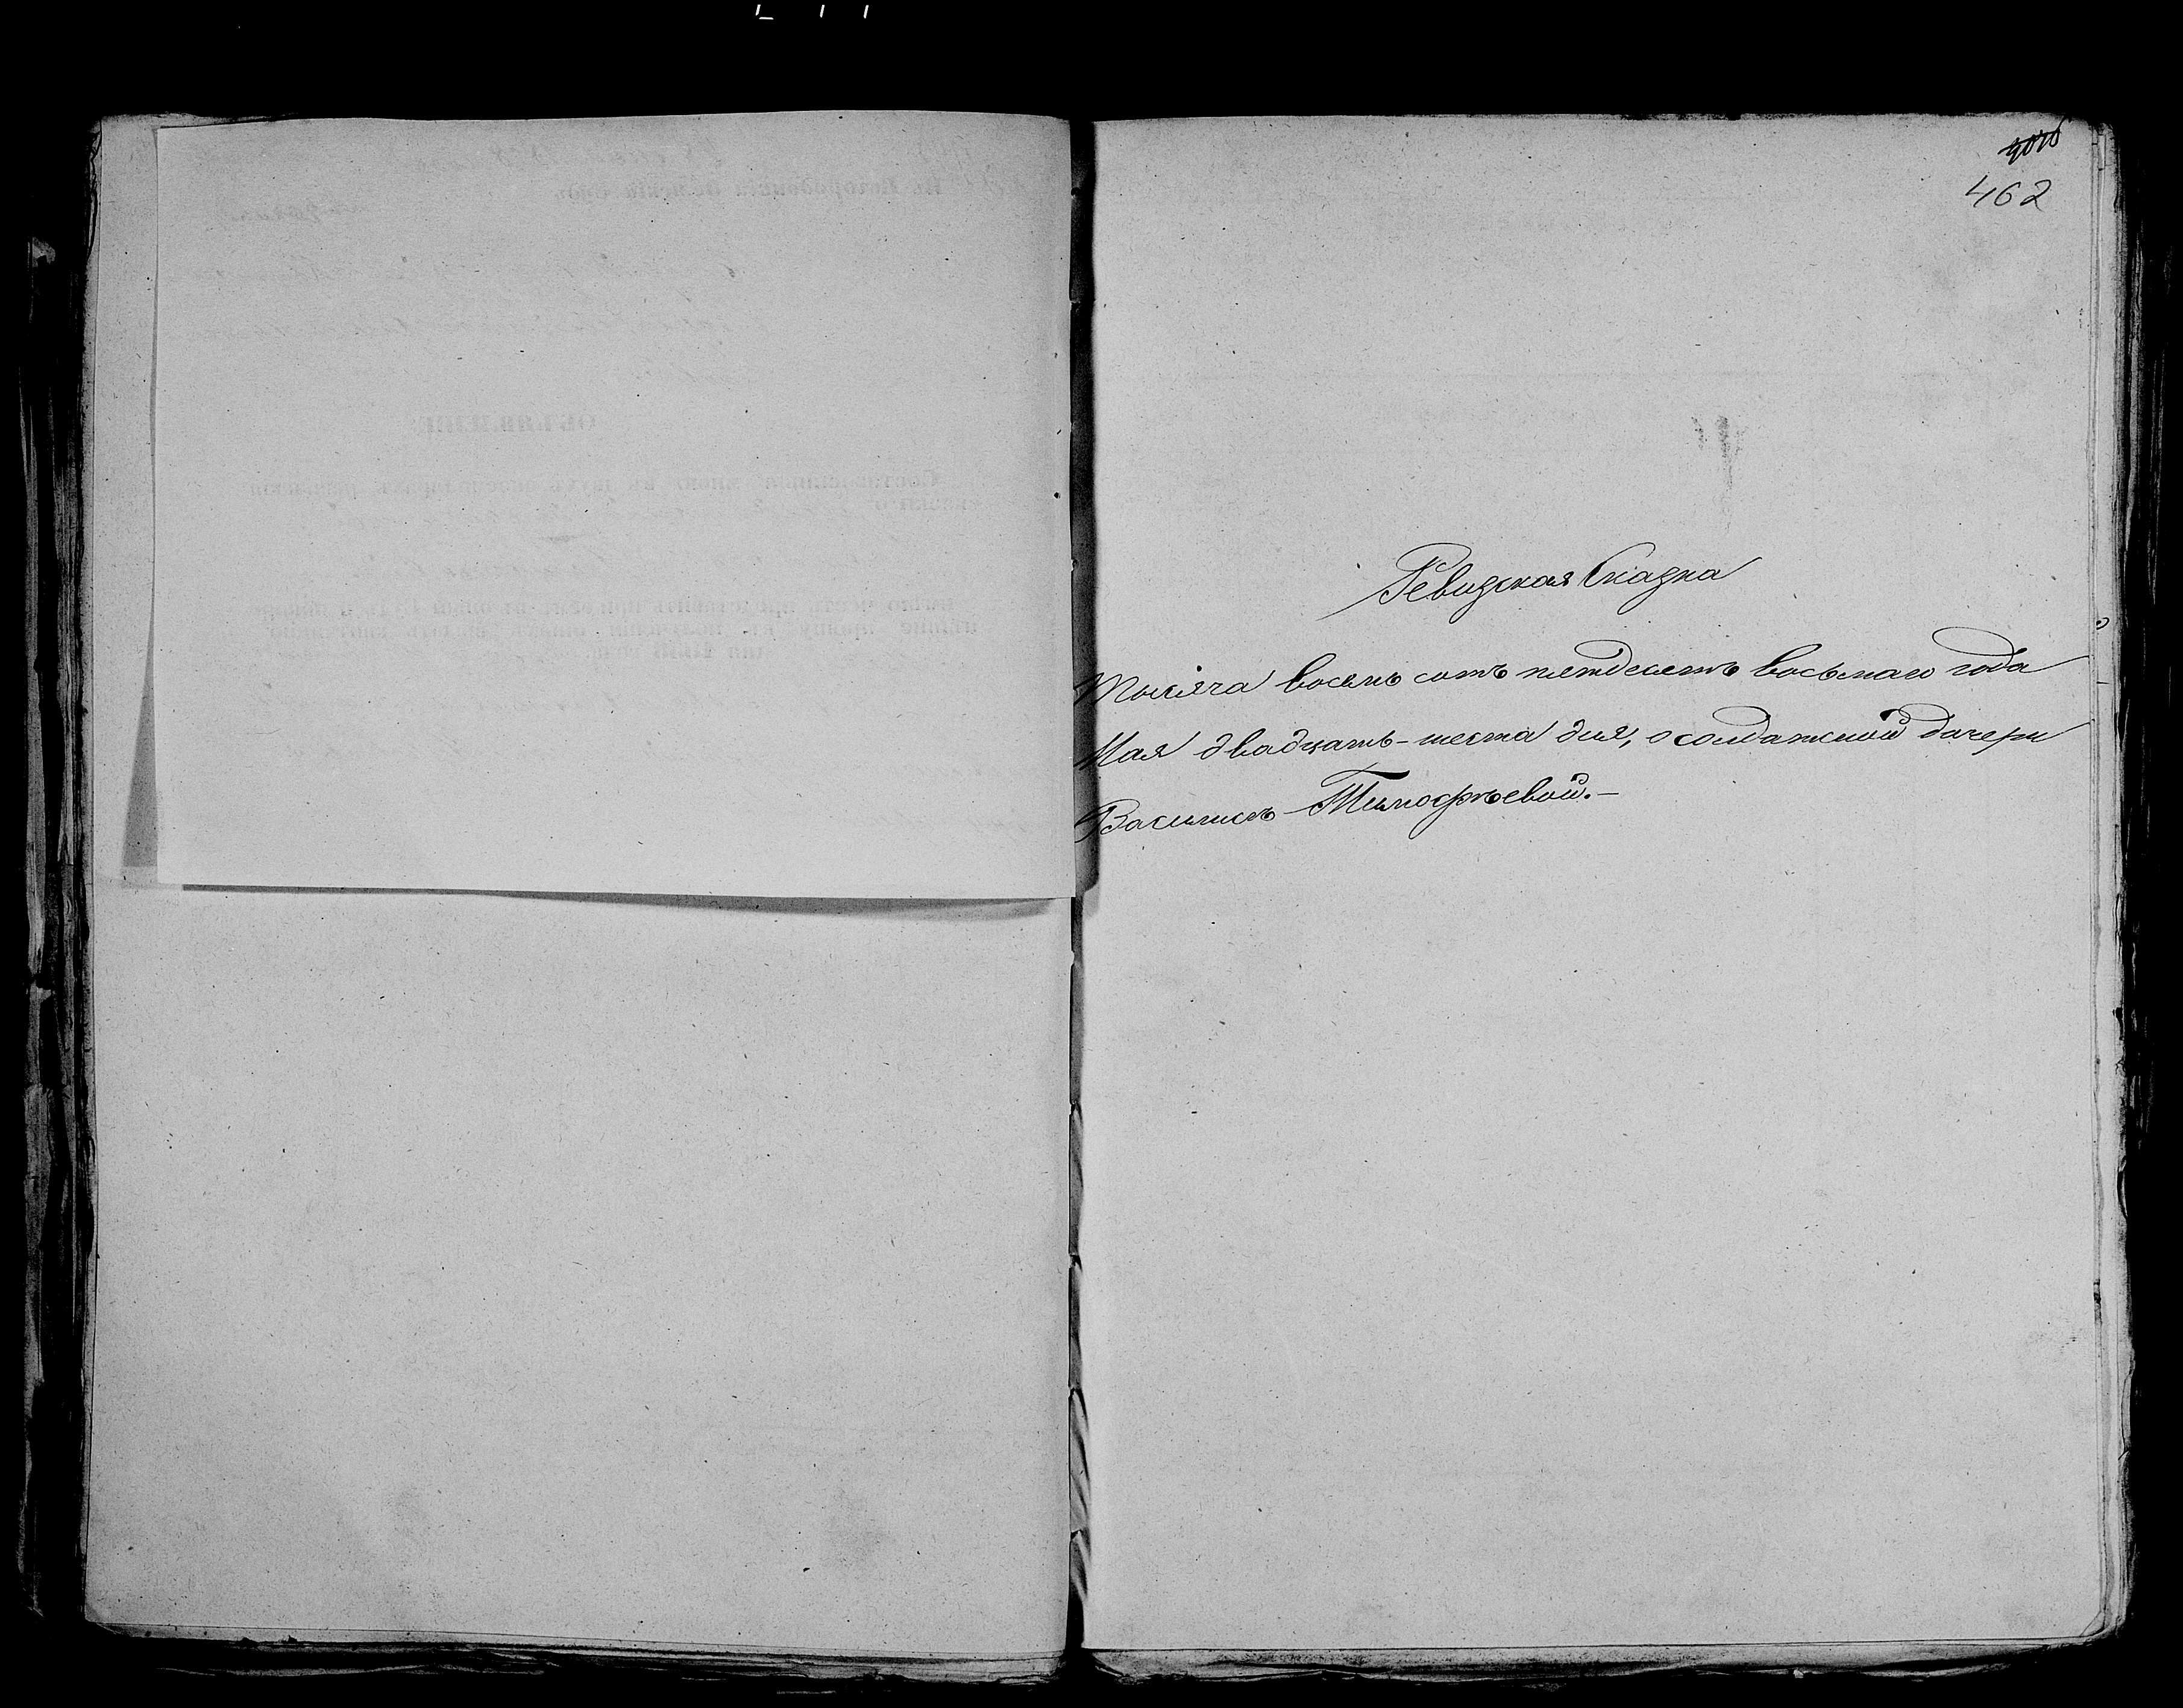 462
Ревизская Сказка
Тысяча восемь сотъ пятдесятъ восьмаго года
Мая двадцать-шеста дня, о солдатской дочери
Василисѣ Тимофѣевой.-